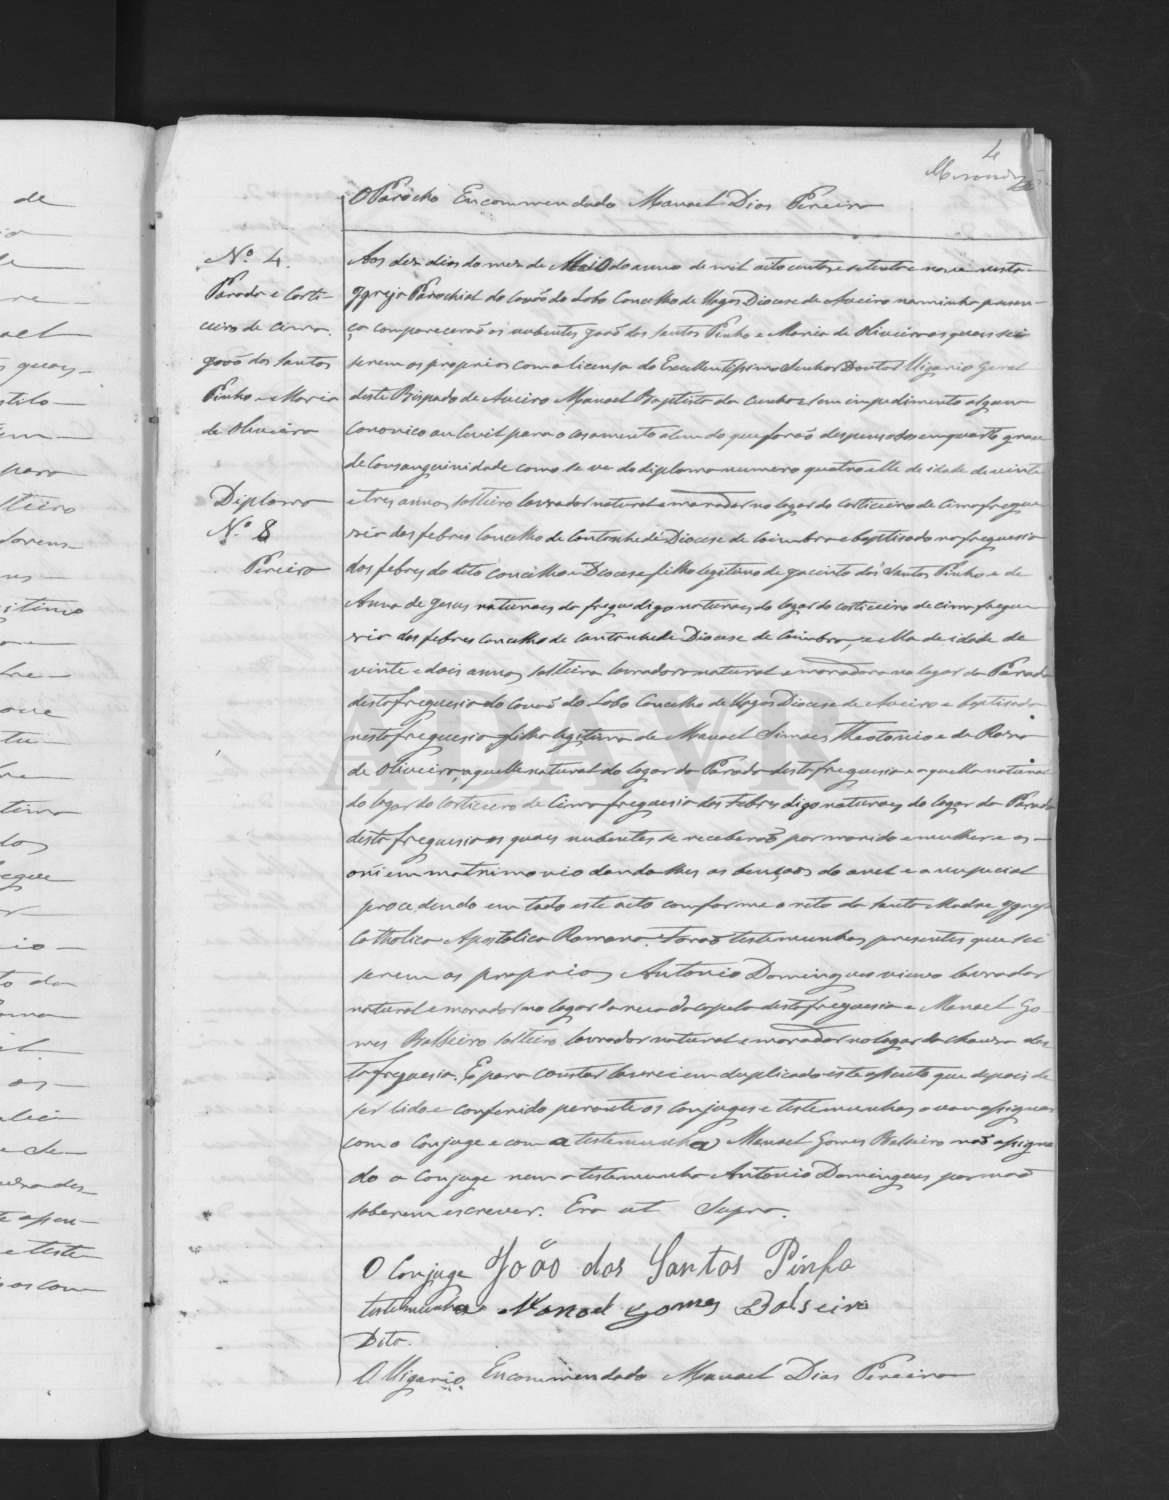 4
O Parocho Encommendado Manoel Dias Pereira
Nº 4.
Parada e Corti-
ceiro de cima.
João dos Santos
Pinho e Maria
de Oliveira
Diploma
Nº 8
Pereira
Aos dez dias do mez de Maio do anno de mil oito centos e setenta e nove nesta
Igreja Parochial do Covão do Lobo Concelho de Vagos Diocese de Aveiro na minha presen-
ça comparecerão os nubentes João dos Santos Pinho e Maria de Oliveira os quaes sei
serem os proprios com a licensa do Excellentissimo Senhor Doutor Vigario Geral
deste Bispado de Aveiro Manoel Baptista da Cunha e sem impedimento algum
Canonico ou Civil para o casamento alem do que forão despensados em quarto grau
de Consanguinidade como se ve do diploma numero quatro elle de idade de vinte
e tres annos solteiro lavrador natural e morador no lugar do Corticeiro de Cima fregue
zia das febres Concelho de Cantanhede Diocese de Coimbra e baptisado na freguesia
das febres do dito concelho e Diocese filho legitimo de Jacinto dos Santos Pinho e de
Anna de Jesus naturaes da fregue digo naturaes do lugar do corticeiro de cima fregue
zia das febres Concelho de Cantanhede Diocese de Coimbra, e ella de idade de
vinte e dois annos solteira lavradora natural e moradora no lugar da Parada
desta freguesia do Covão do Lobo Concelho de Vagos Diocese de Aveiro e baptisada
nesta freguesia filha legitima de Manoel Simoes Theotonio e de Rosa
de Oliveira, aquelle natural do lugar da Parada desta freguesia e aquella natural
do lugar do Corticeiro de Cima freguesia das Febres digo naturaes do lugar da Parada
desta freguesia os quaes nubentes se receberão por marido e mulher e os
uni em matrimonio dando lhes as bençaos do anel e a nupcial
procedendo em todo este acto conforme o rito da Santa Madre Igreja
Catholica Apostolica Romana. Forão testemunhas presentes, que sei
serem os proprios, Antonio Domingues viuvo lavrador
natural e morador no lugar da capela desta freguesia e Manoel Go-
mes Balseiro solteiro lavrador natural e morador no lugar da chousa des
ta freguesia. E para constar lavrei em duplicado este assento que depois de
ser lido e conferido perante os Conjuges e testemunhas o vou assignar
com o Conjuge e com a testemunha Manoel Gomes Balseiro não assigna
do a Conjuge nem a testemunha Antonio Domingues por não
saberem escrever. Era ut Supra.
O Conjuge João dos Santos Pinho
testemunha Manoel Gomes Balseiro
Dito.
O Vigario Encommendado Manoel Dias Pereira
ADAVR